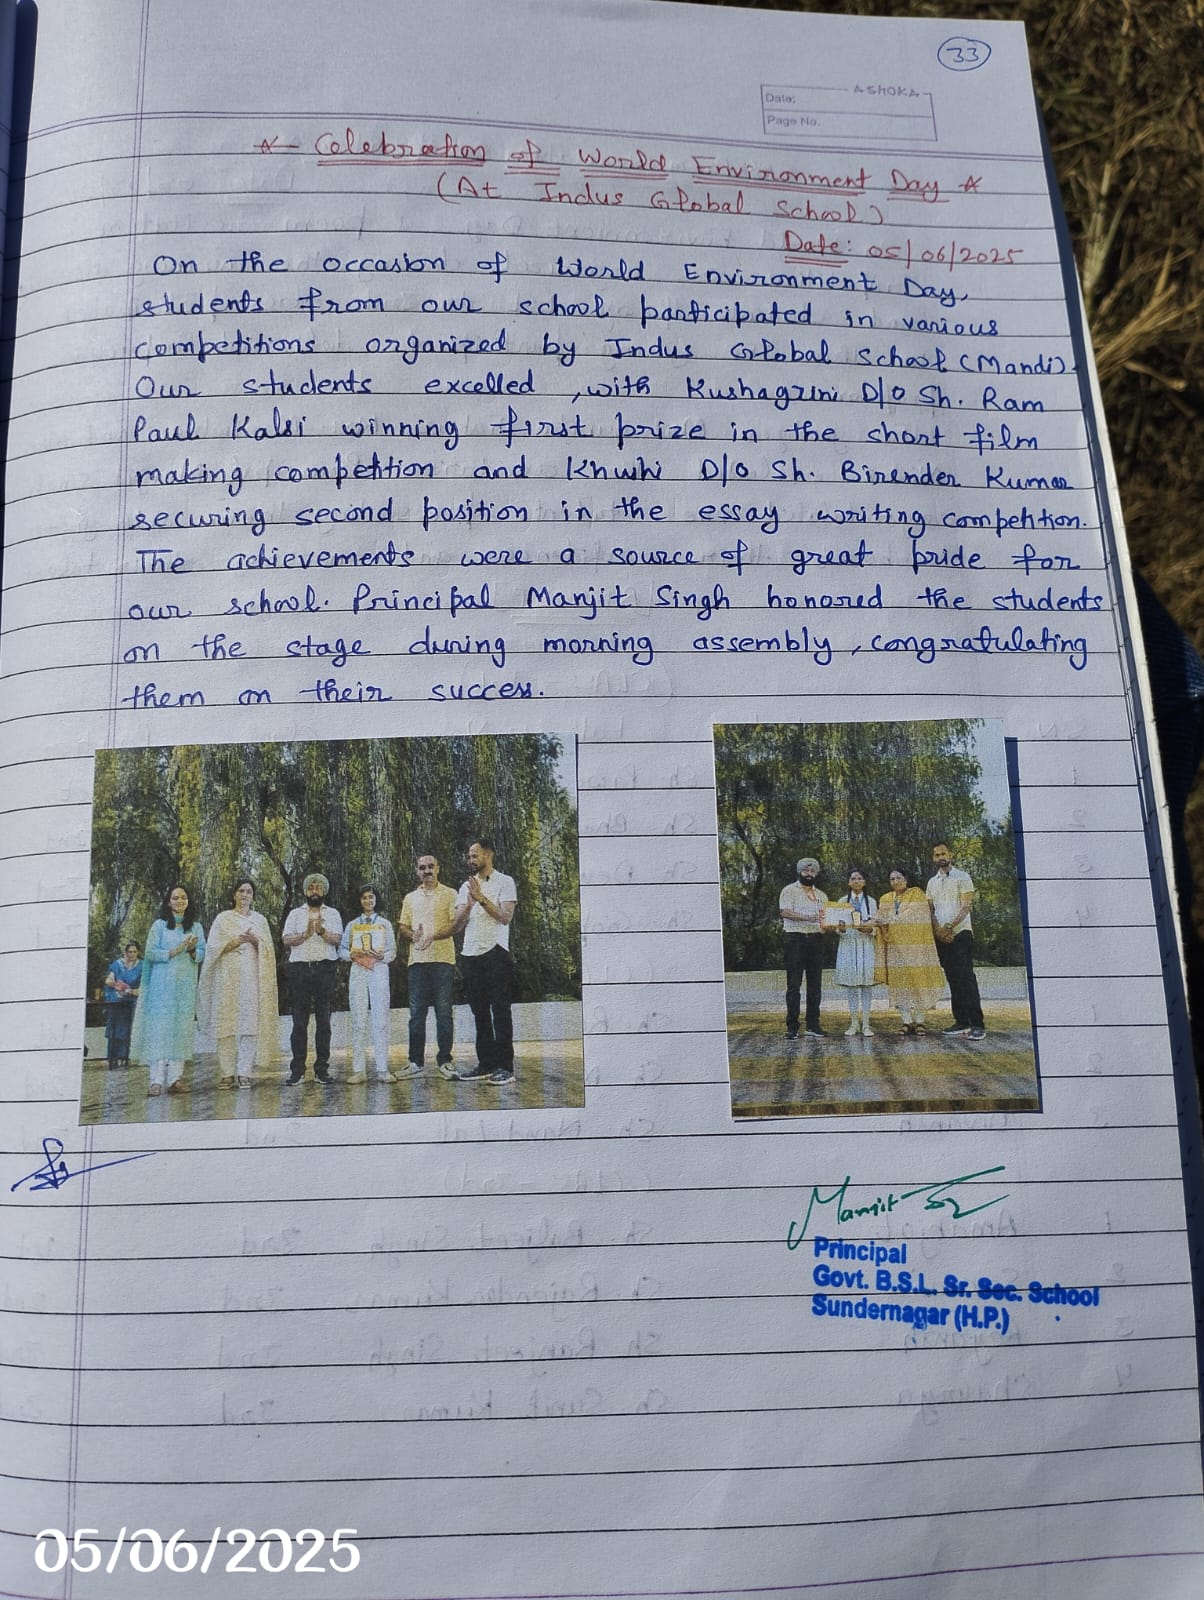 33
ASHOKA
Date:
Page No.
* Celebration of World Environment Day *
(At Indus Global School)
Date: 05/06/2025
On the occasion of World Environment Day,
students from our school participated in various
competitions organized by Indus Global School (Mandi).
Our students excelled, with Kushagrini D/O Sh. Ram
Paul Kalsi winning first prize in the short film
making competition and Khwhi D/O Sh. Birender Kumar
securing second position in the essay writing competition.
The achievements were a source of great pride for
our school. Principal Manjit Singh honored the students
on the stage during morning assembly, congratulating
them on their success.
Manjit
Principal
Govt. B.S.L. Sr. Sec. School
Sundernagar (H.P.)
05/06/2025